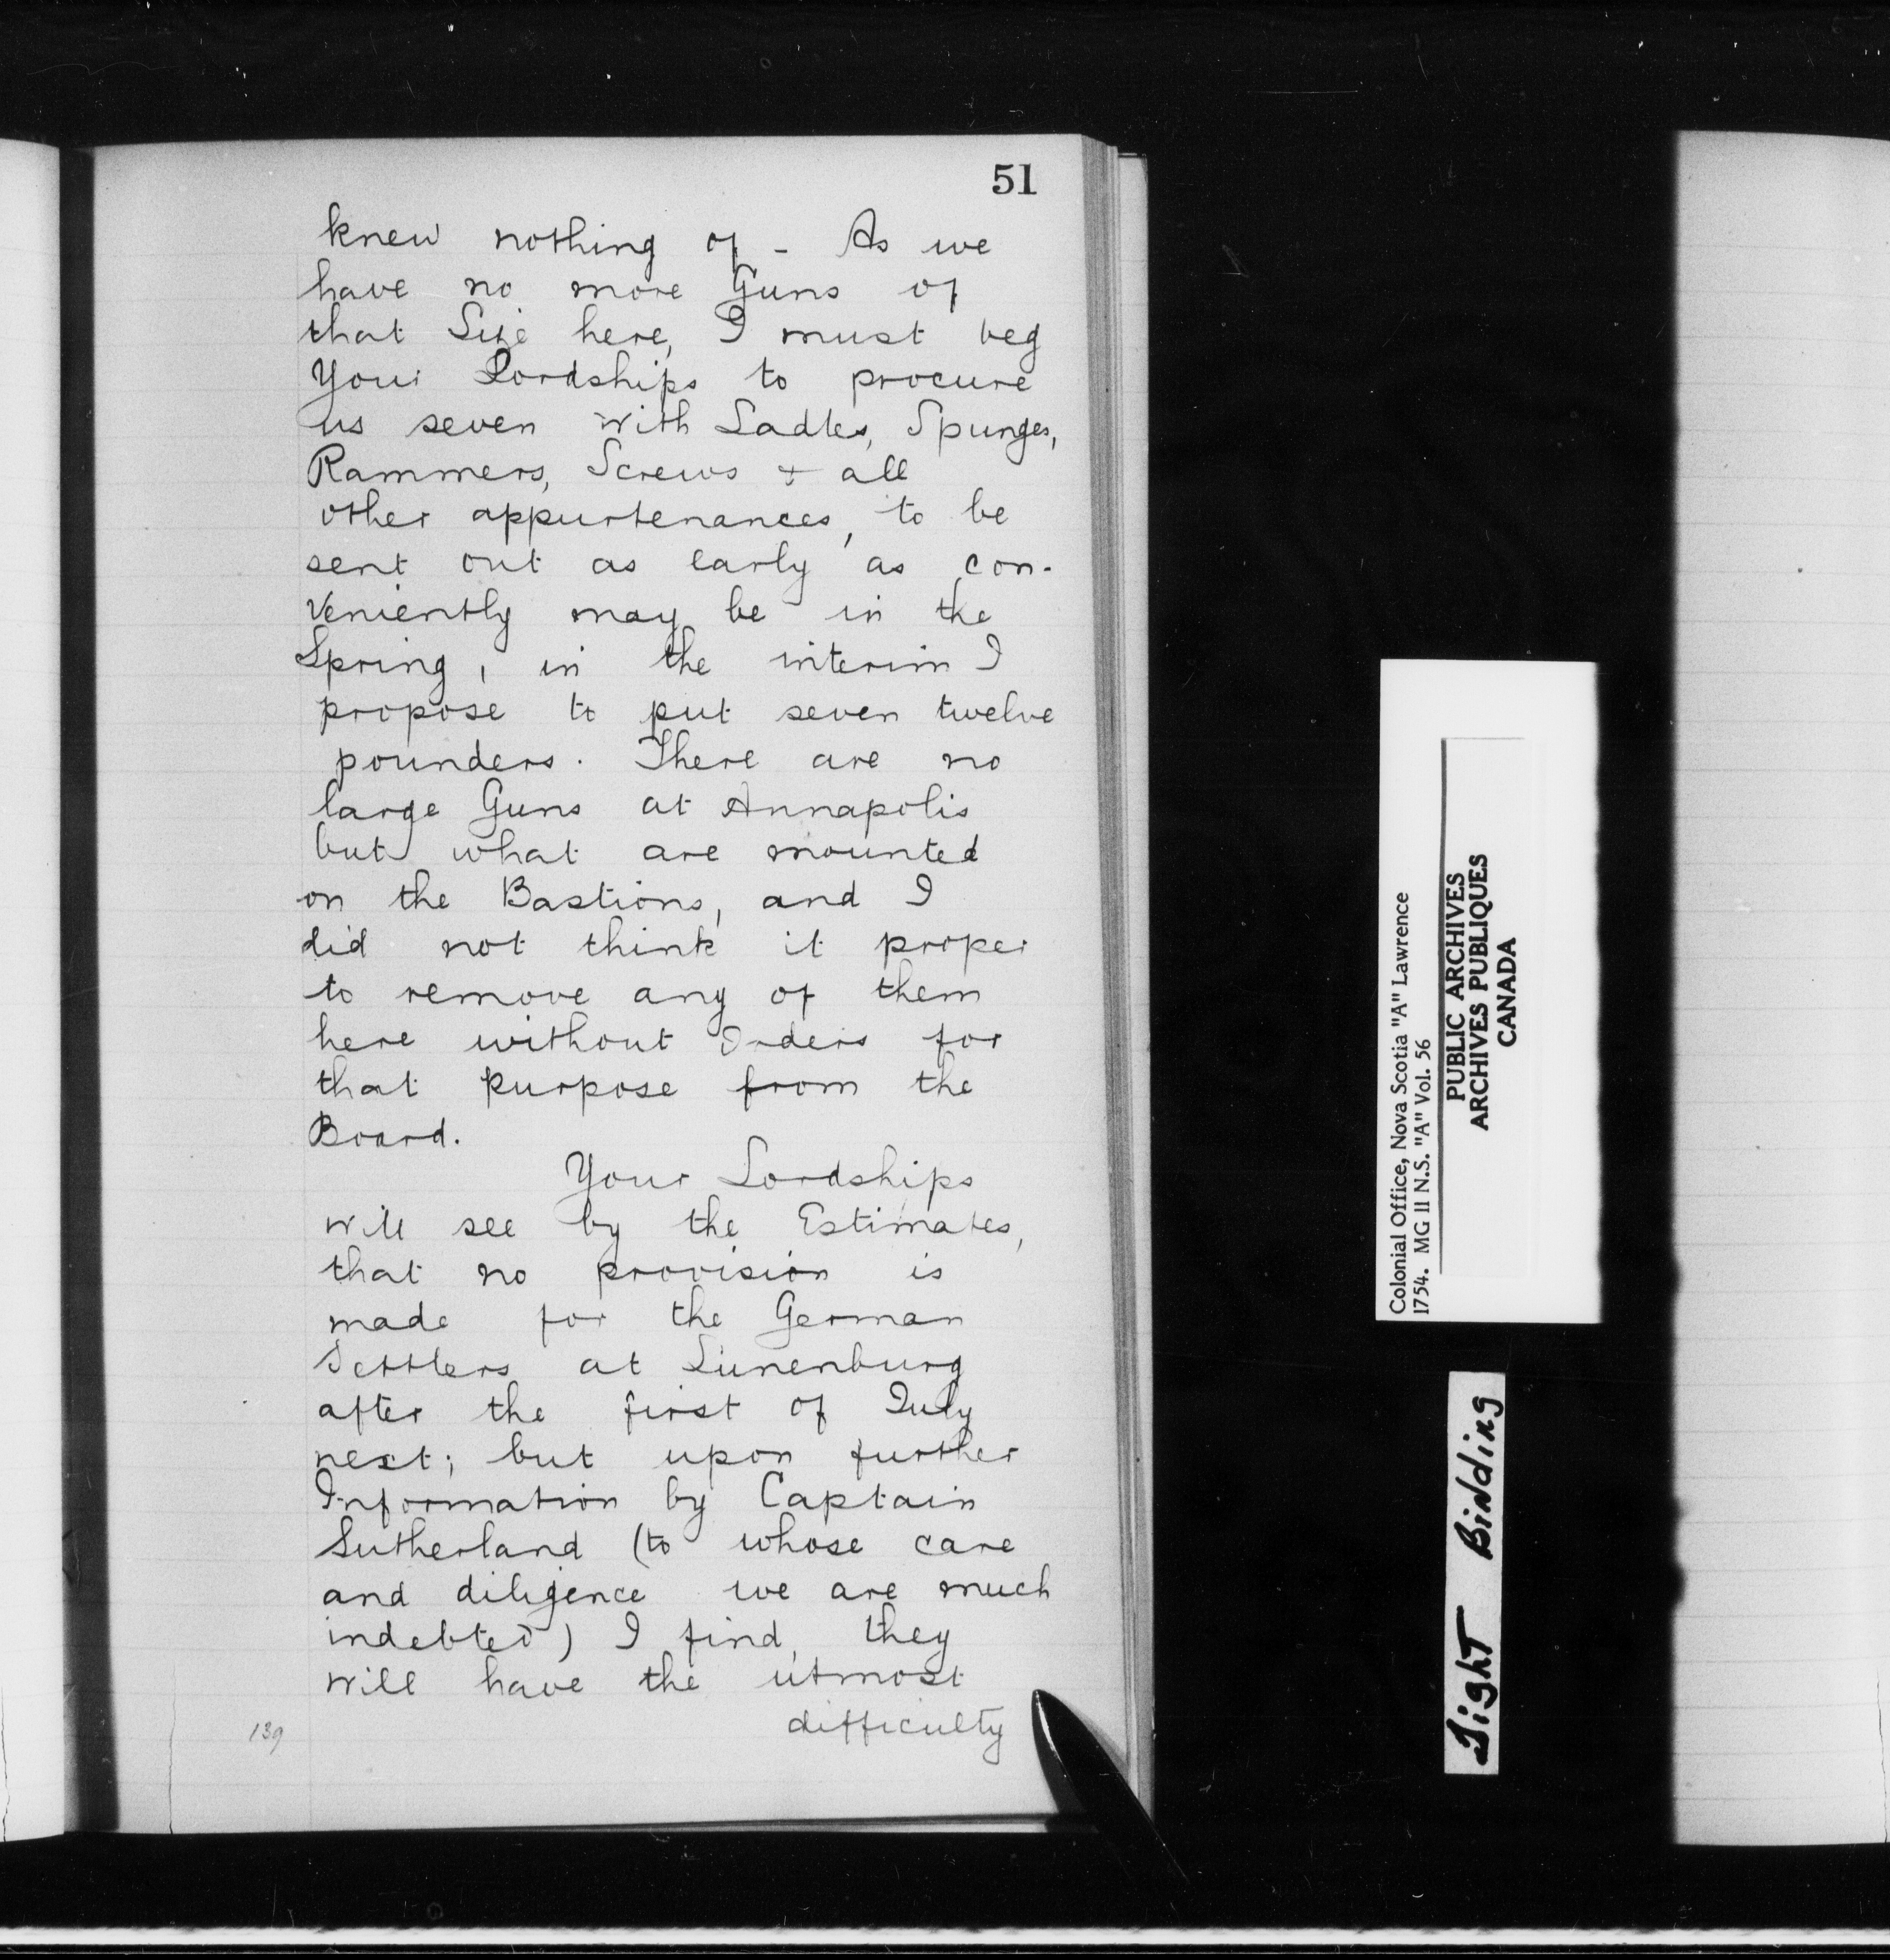 51
knew nothing of - As we
have no more Guns of
that Size here, I must beg
Your Lordships to procure
us seven with Ladles, Spunges,
Rammers, Screws & all
other appurtenances, to be
sent out as early as con-
veniently may be in the
Spring, in the interim I
propose to put seven twelve
pounders. There are no
large Guns at Annapolis
but what are mounted
on the Bastions, and I
did not think it proper
to remove any of them
here without Orders for
that purpose from the
Board.
Your Lordships
will see by the Estimates,
that no provision is
made for the German
Settlers at Lunenburg
after the first of July
next; but upon further
Information by Captain
Sutherland (to whose care
and diligence we are much
indebted) I find, they
will have the utmost
difficulty
139
Colonial Office, Nova Scotia "A" Lawrence
1754. MG 11 N.S. "A" Vol. 56
PUBLIC ARCHIVES
ARCHIVES PUBLIQUES
CANADA
Tight Binding